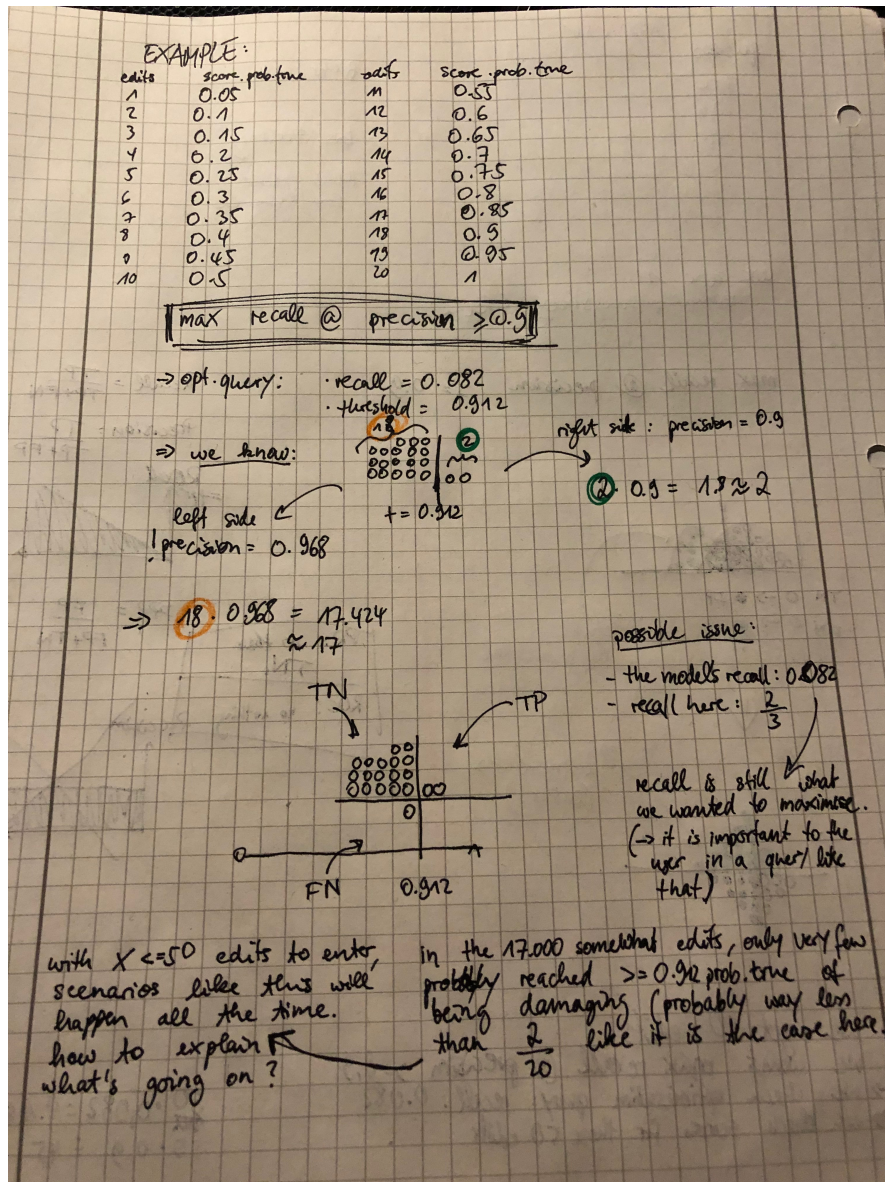 EXAMPLE:
edits score.prob.true edits score.prob.true
1 0.05 11 0.55
2 0.1 12 0.6
3 0.15 13 0.65
4 0.2 14 0.7
5 0.25 15 0.75
6 0.3 16 0.8
7 0.35 17 0.85
8 0.4 18 0.9
9 0.45 19 0.95
10 0.5 20 1
max recall @ precision ≥0.9
→ opt.query: · recall = 0.082
· threshold = 0.912
⇒ we know: 18 2
t = 0.912
right side: precision = 0.9
2 · 0.9 = 1.8 ≈ 2
left side
! precision = 0.968
⇒ 18 · 0.968 = 17.424
≈ 17
possible issue:
- the model's recall: 0.082
- recall here: 2/3
recall is still what
we wanted to maximise.
(→ it is important to the
user in a query like
that)
TN TP
0 1
FN 0.912
with X <=50 edits to enter,
scenarios like this will
happen all the time.
how to explain
what's going on?
in the 17.000 somewhat edits, only very few
probably reached >= 0.912 prob.true of
being damaging (probably way less
than 2/20 like it is the case here.